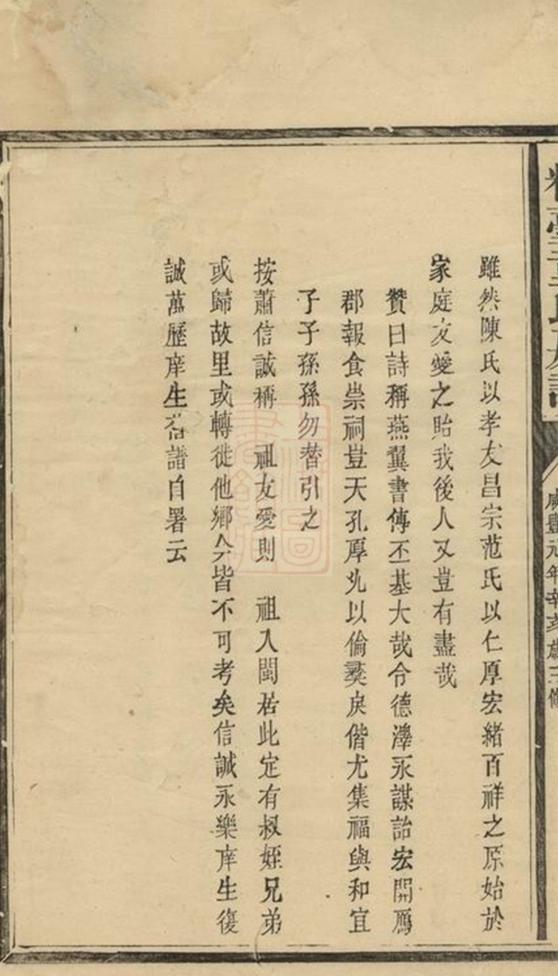 咸豐元年辛亥歲三修
雖然陳氏以孝友昌宗范氏以仁厚宏緒百祥之原始於
家庭友愛之貽我後人又豈有盡哉
贊曰詩稱燕翼書傳丕基大哉令德澤永謀詒宏開鴈
郡報食崇祠豈天孔厚兆以倫彝戾偕尤集福與和宜
子子孫孫勿替引之
按蕭信誠稱 祖友愛則 祖入閩居此定有叔姪兄弟
或歸故里或轉徙他鄉今皆不可考矣信誠永樂庠生復
誠萬歷庠生舊譜自署云